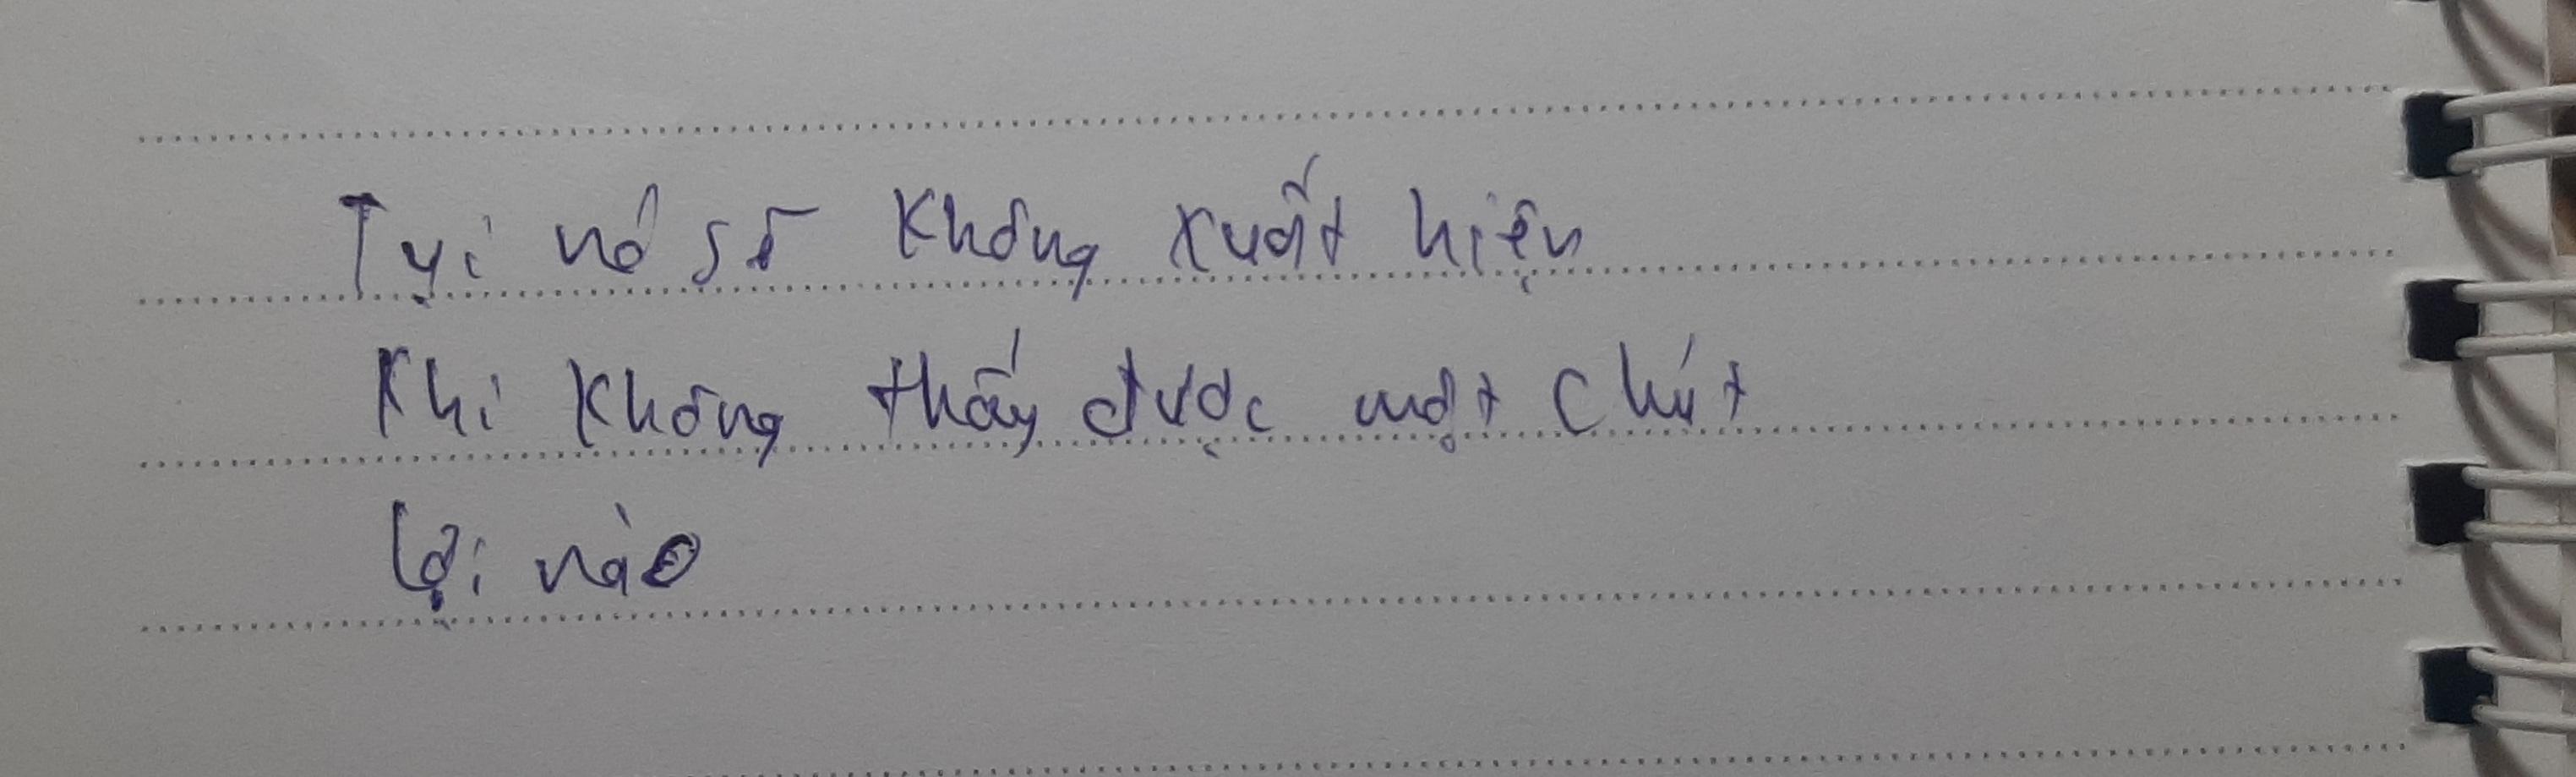 Tụi nó sẽ không xuất hiện
Khi không thấy được một chút
lợi nào